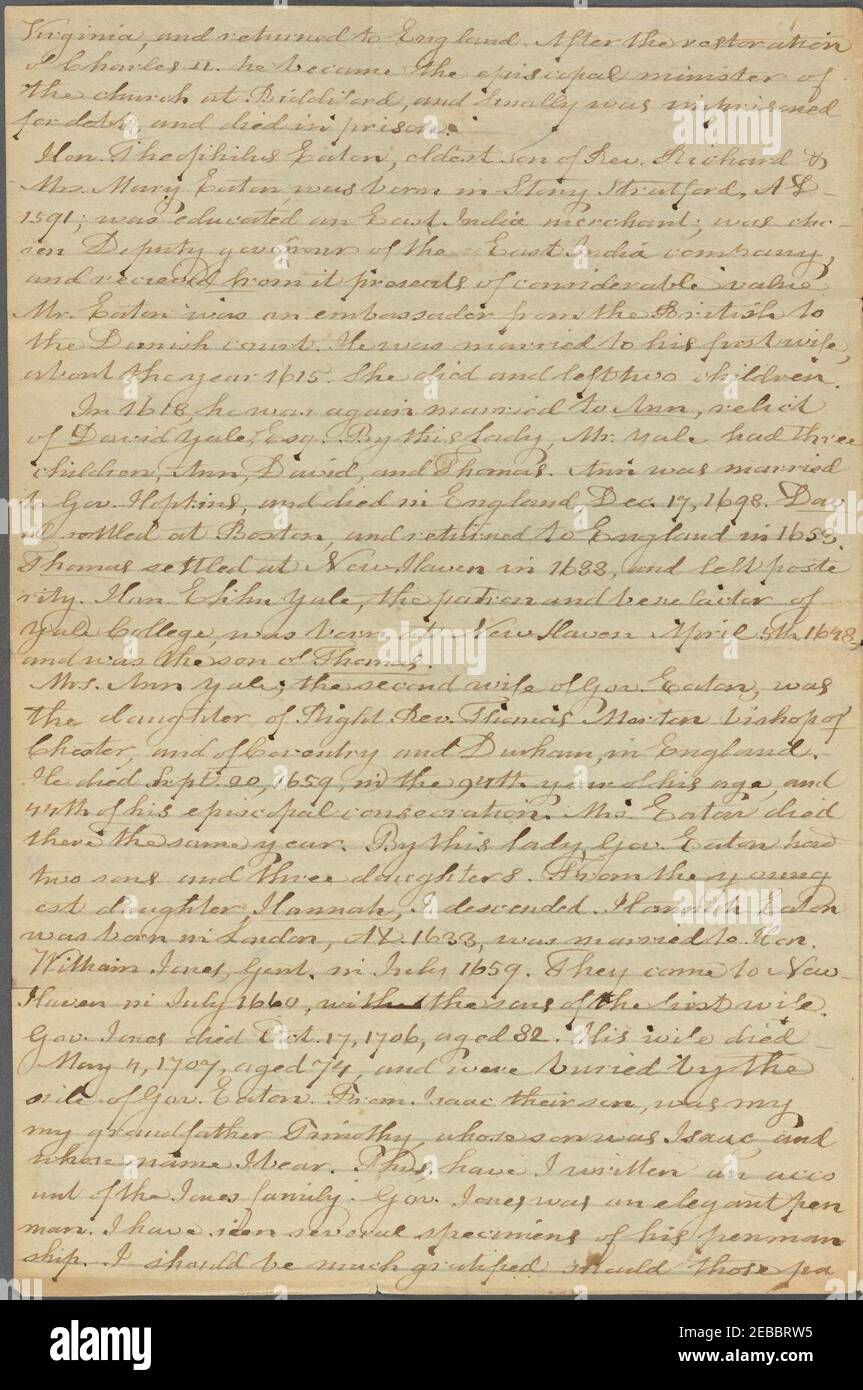 Virginia, and returned to England. After the restoration
of Charles II. he became the episcopal minister of
the church at Biddiford, and finally was imprisoned
for debt, and died in prison.
Hon. Theophilus Eaton, oldest son of Rev. Richard &
Mrs. Mary Eaton, was born in Stony Stratford, AD
1591; was educated an East India merchant; was cho-
sen Deputy governour of the East India company,
and recieved from it presents of considerable value
Mr. Eaton was an embassador from the British to
the Danish court. He was married to his first wife,
about the year 1615. She died and left two children.
In 1618, he was again married to Ann, relict
of David Yale, Esq. By this lady, Mr. Yale had three
children, Ann, David, and Thomas. Ann was married
to Gov. Hopkins, and died in England Dec. 17, 1698. Da-
settled at Boston, and returned to England in
Thomas settled at New Haven in and left poste
rity. Hon. Elihu Yale, the patron and benefactor of
Yale College, was born at New Haven April 5th, 1648,
and was the son of Thomas.
Mrs. Ann Yale, the second wife of Gov. Eaton, was
the daughter of Right Rev. Thomas Morton bishop of
Chester, and of Coventry and Durham, in England.
He died Sept. 20, 1659, in the 94th year of his age, and
44th of his episcopal consecration. Mrs. Eaton died
there the same year. By this lady, Gov. Eaton had
two sons and three daughters. From the young
est daughter, Hannah, I descended. Hannah Eaton
was born in London, AD. 1633, was married to Hon.
William Jones, Gent. in July 1659. They came to New-
Haven in July 1660, with the sons of the first wife.
Gov. Jones died Oct. 17, 1706, aged 82. His wife died
May 4, 1707, aged 74, and were buried by the
side of Gov. Eaton. From Isaac their son, was my
my grandfather Timothy, whose son was Isaac, and
whose name I bear. Thus, have I written an acco
unt of the Jones family. Gov. Jones was an elegant pen
man. I have seen several specimens of his penman
ship. I should be much gratified should those pa
alamy
Image ID: 2EBBRW5
www.alamy.com